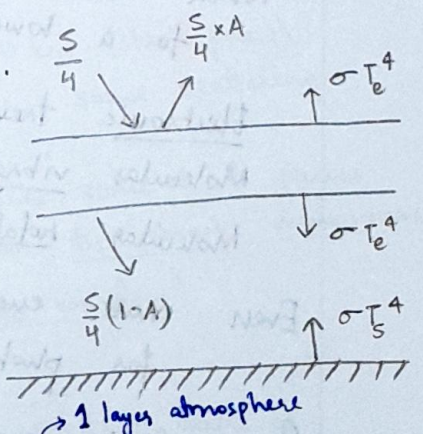 S/4
S/4 × A
σT_e^4
σT_e^4
S/4 (1-A)
σT_s^4
→ 1 layer atmosphere